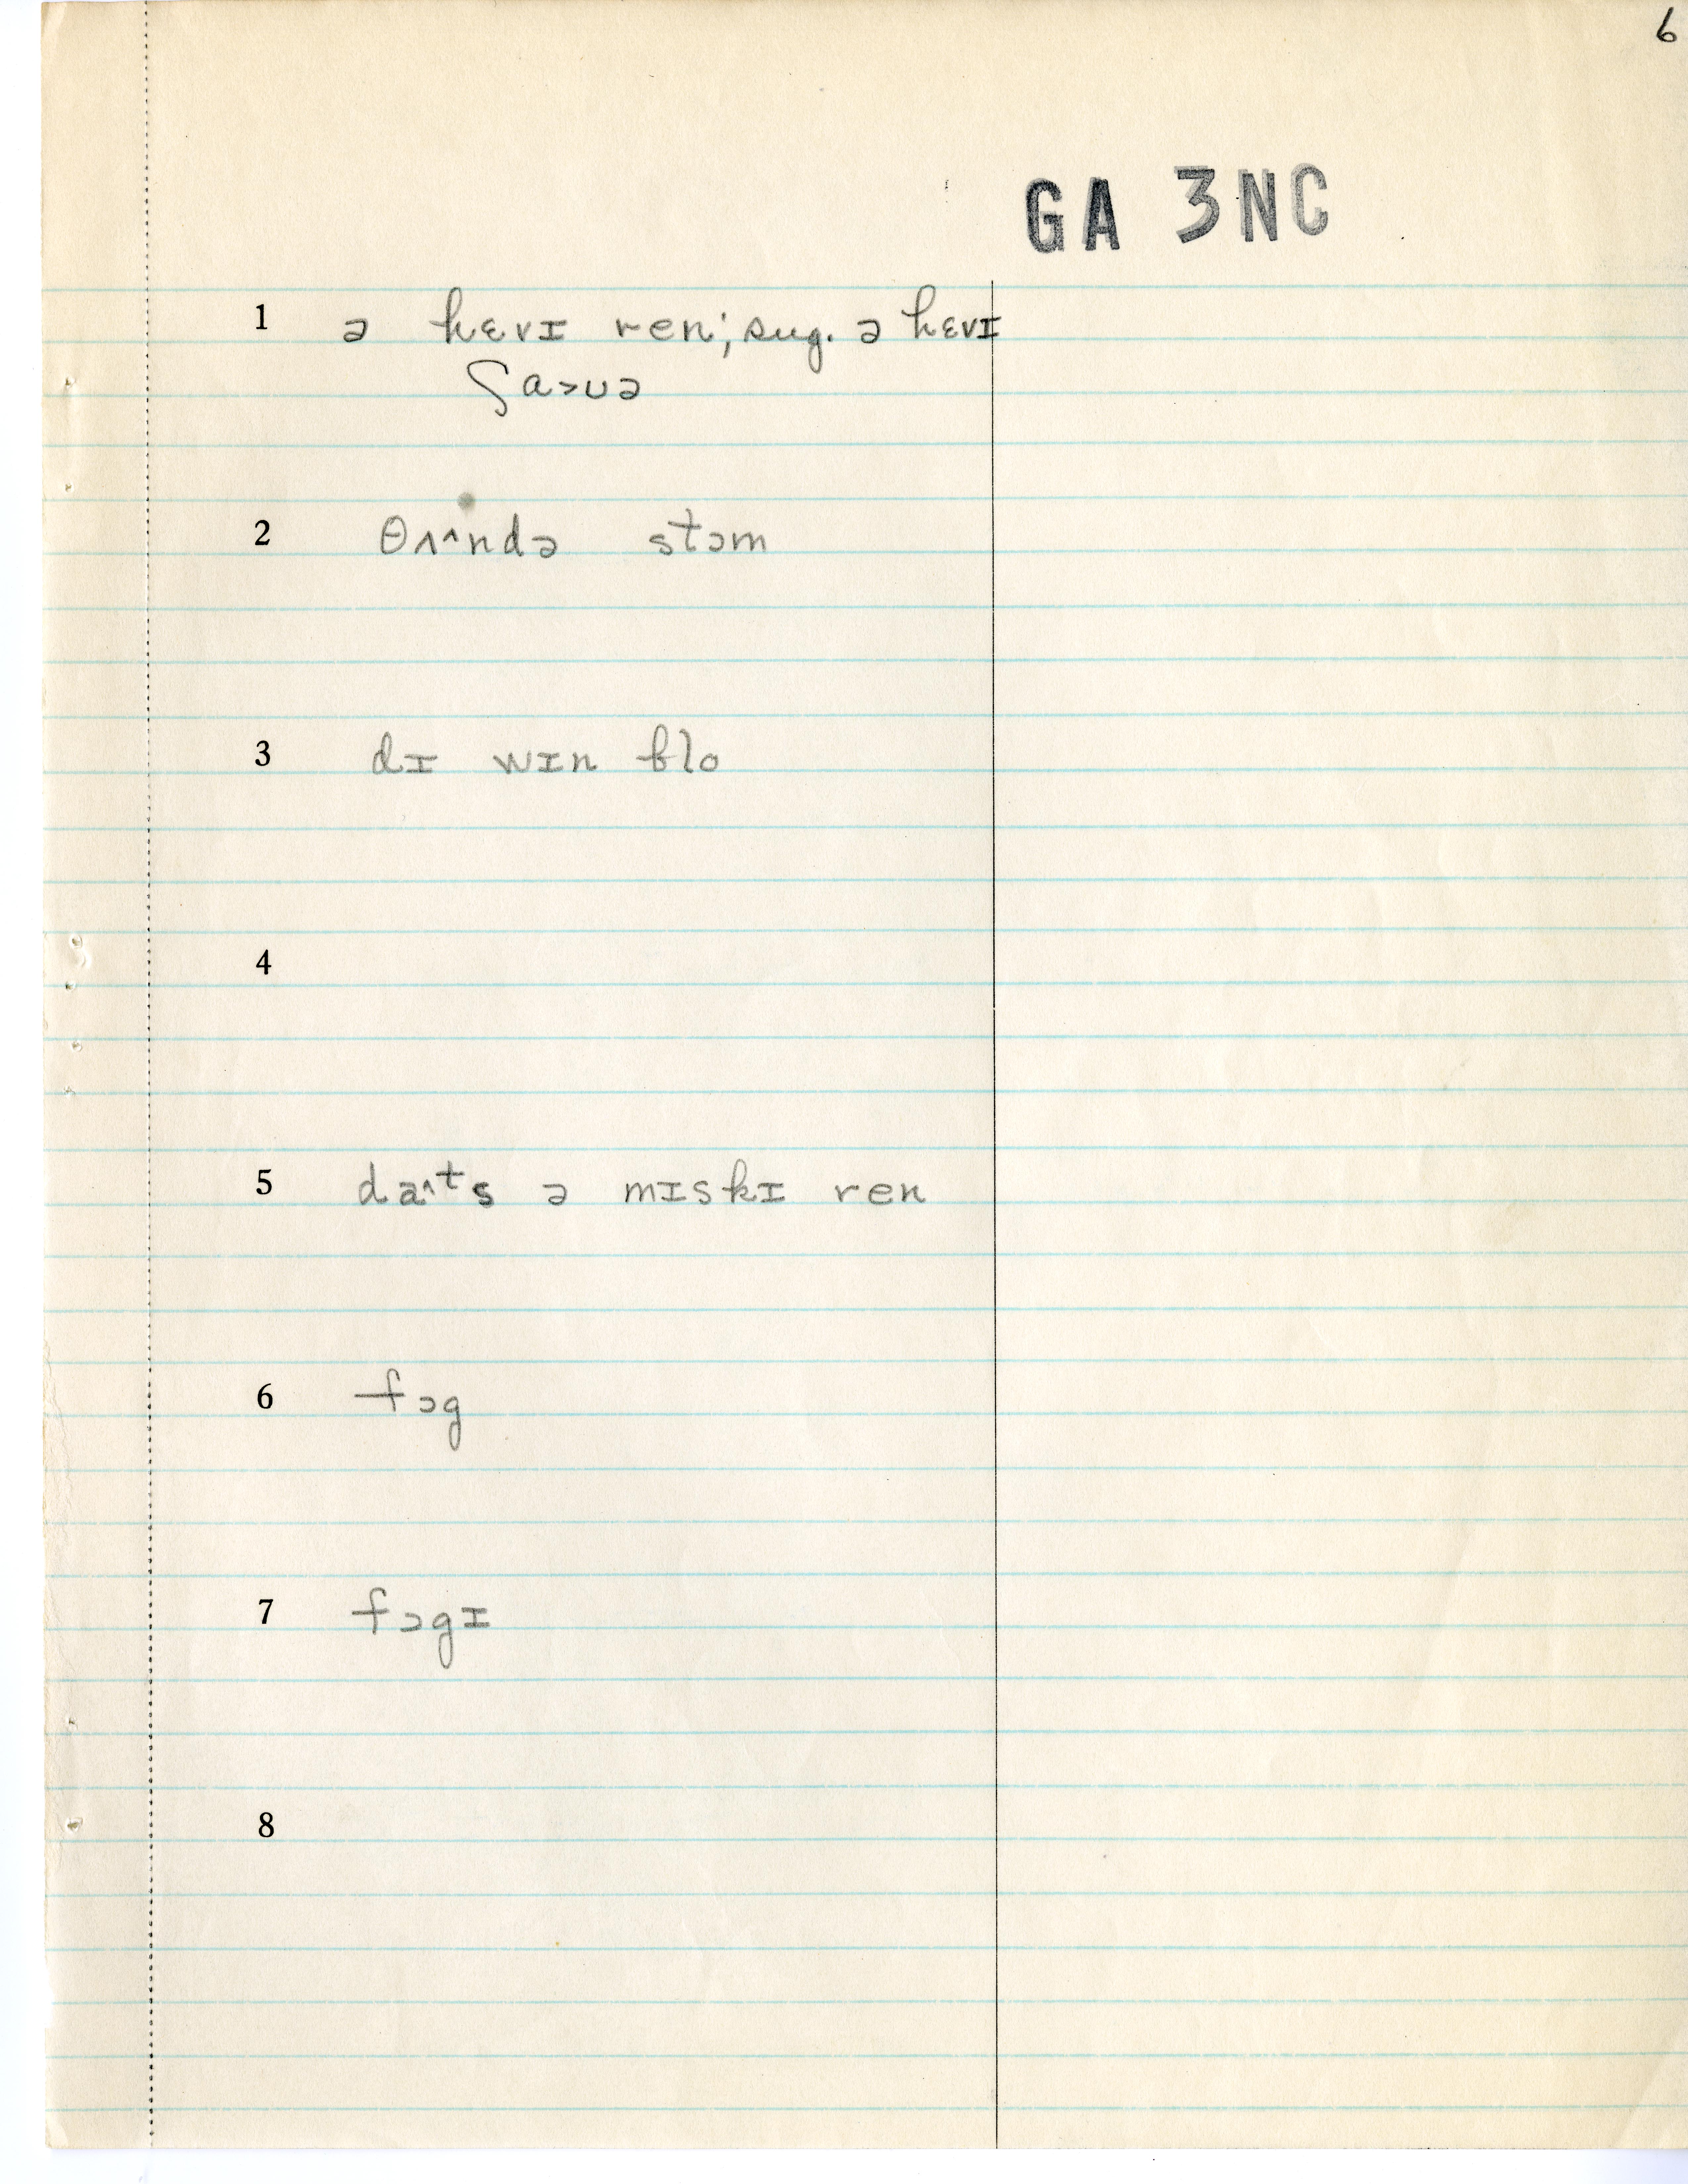 6
GA 3NC
1 ə hɛvɪ ren; sug. ə hɛvɪ
ʃa>uə
2 θʌ^ndə stɔm
3 dɪ wɪn blo
4
5 da^ts ə mɪskɪ ren
6 fɔg
7 fɔgɪ
8